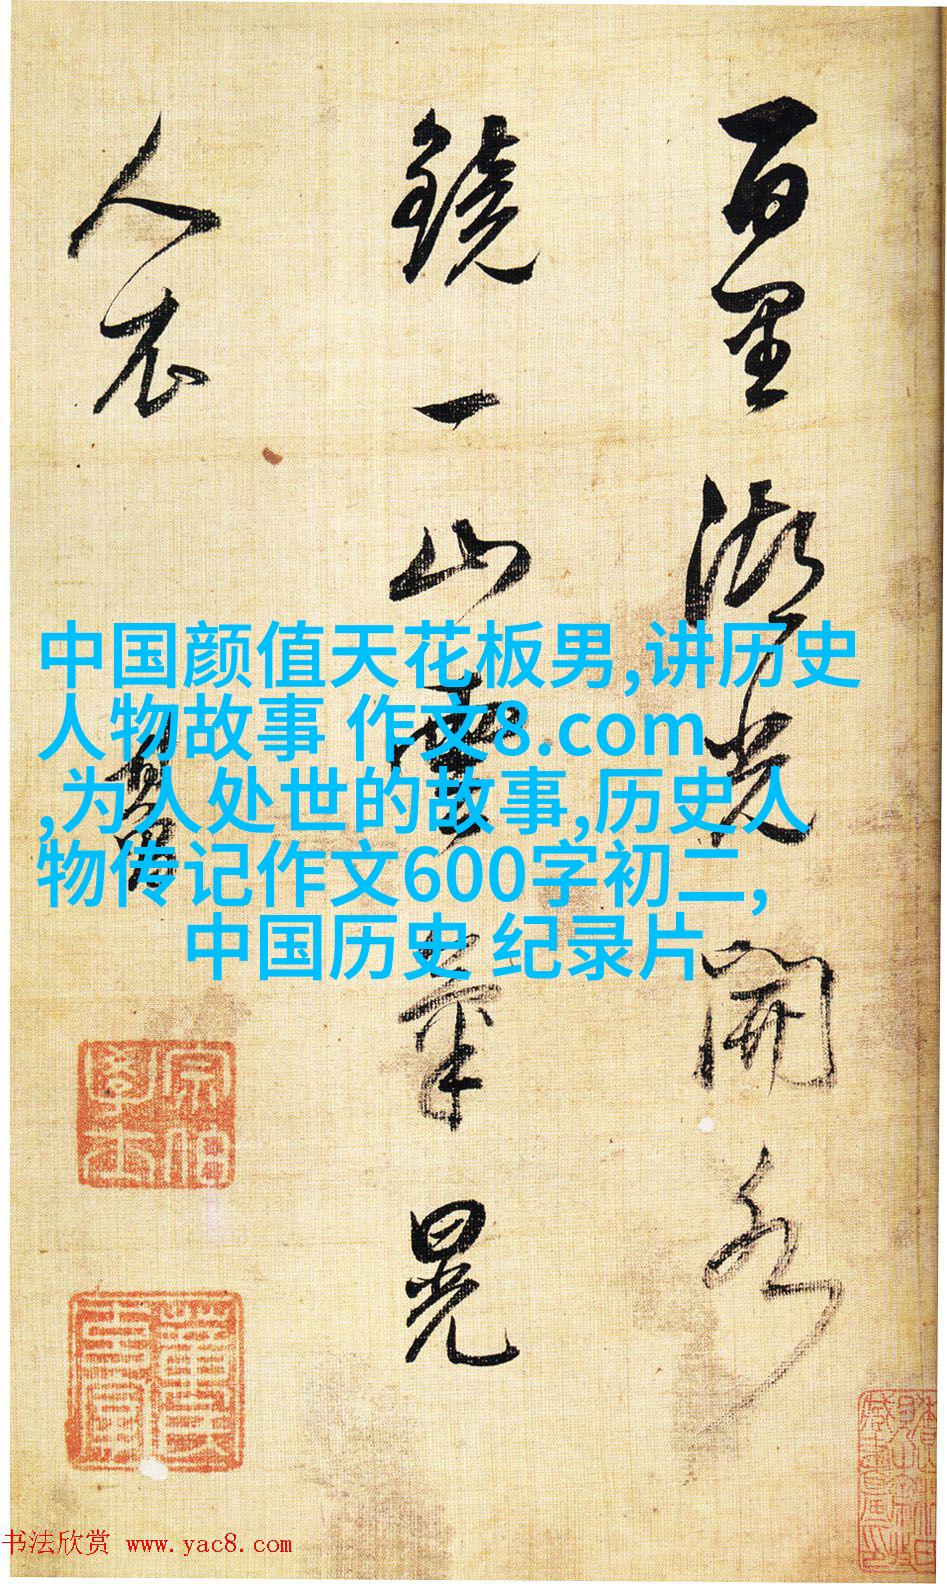 百里湖光開水
鏡一山雲晃
人衣
其昌
中国颜值天花板男,讲历史
人物故事 作文8.com
,为人处世的故事,历史人
物传记作文600字初二,
中国历史 纪录片
宗伯學士
董氏玄宰
书法欣赏 www.yac8.com